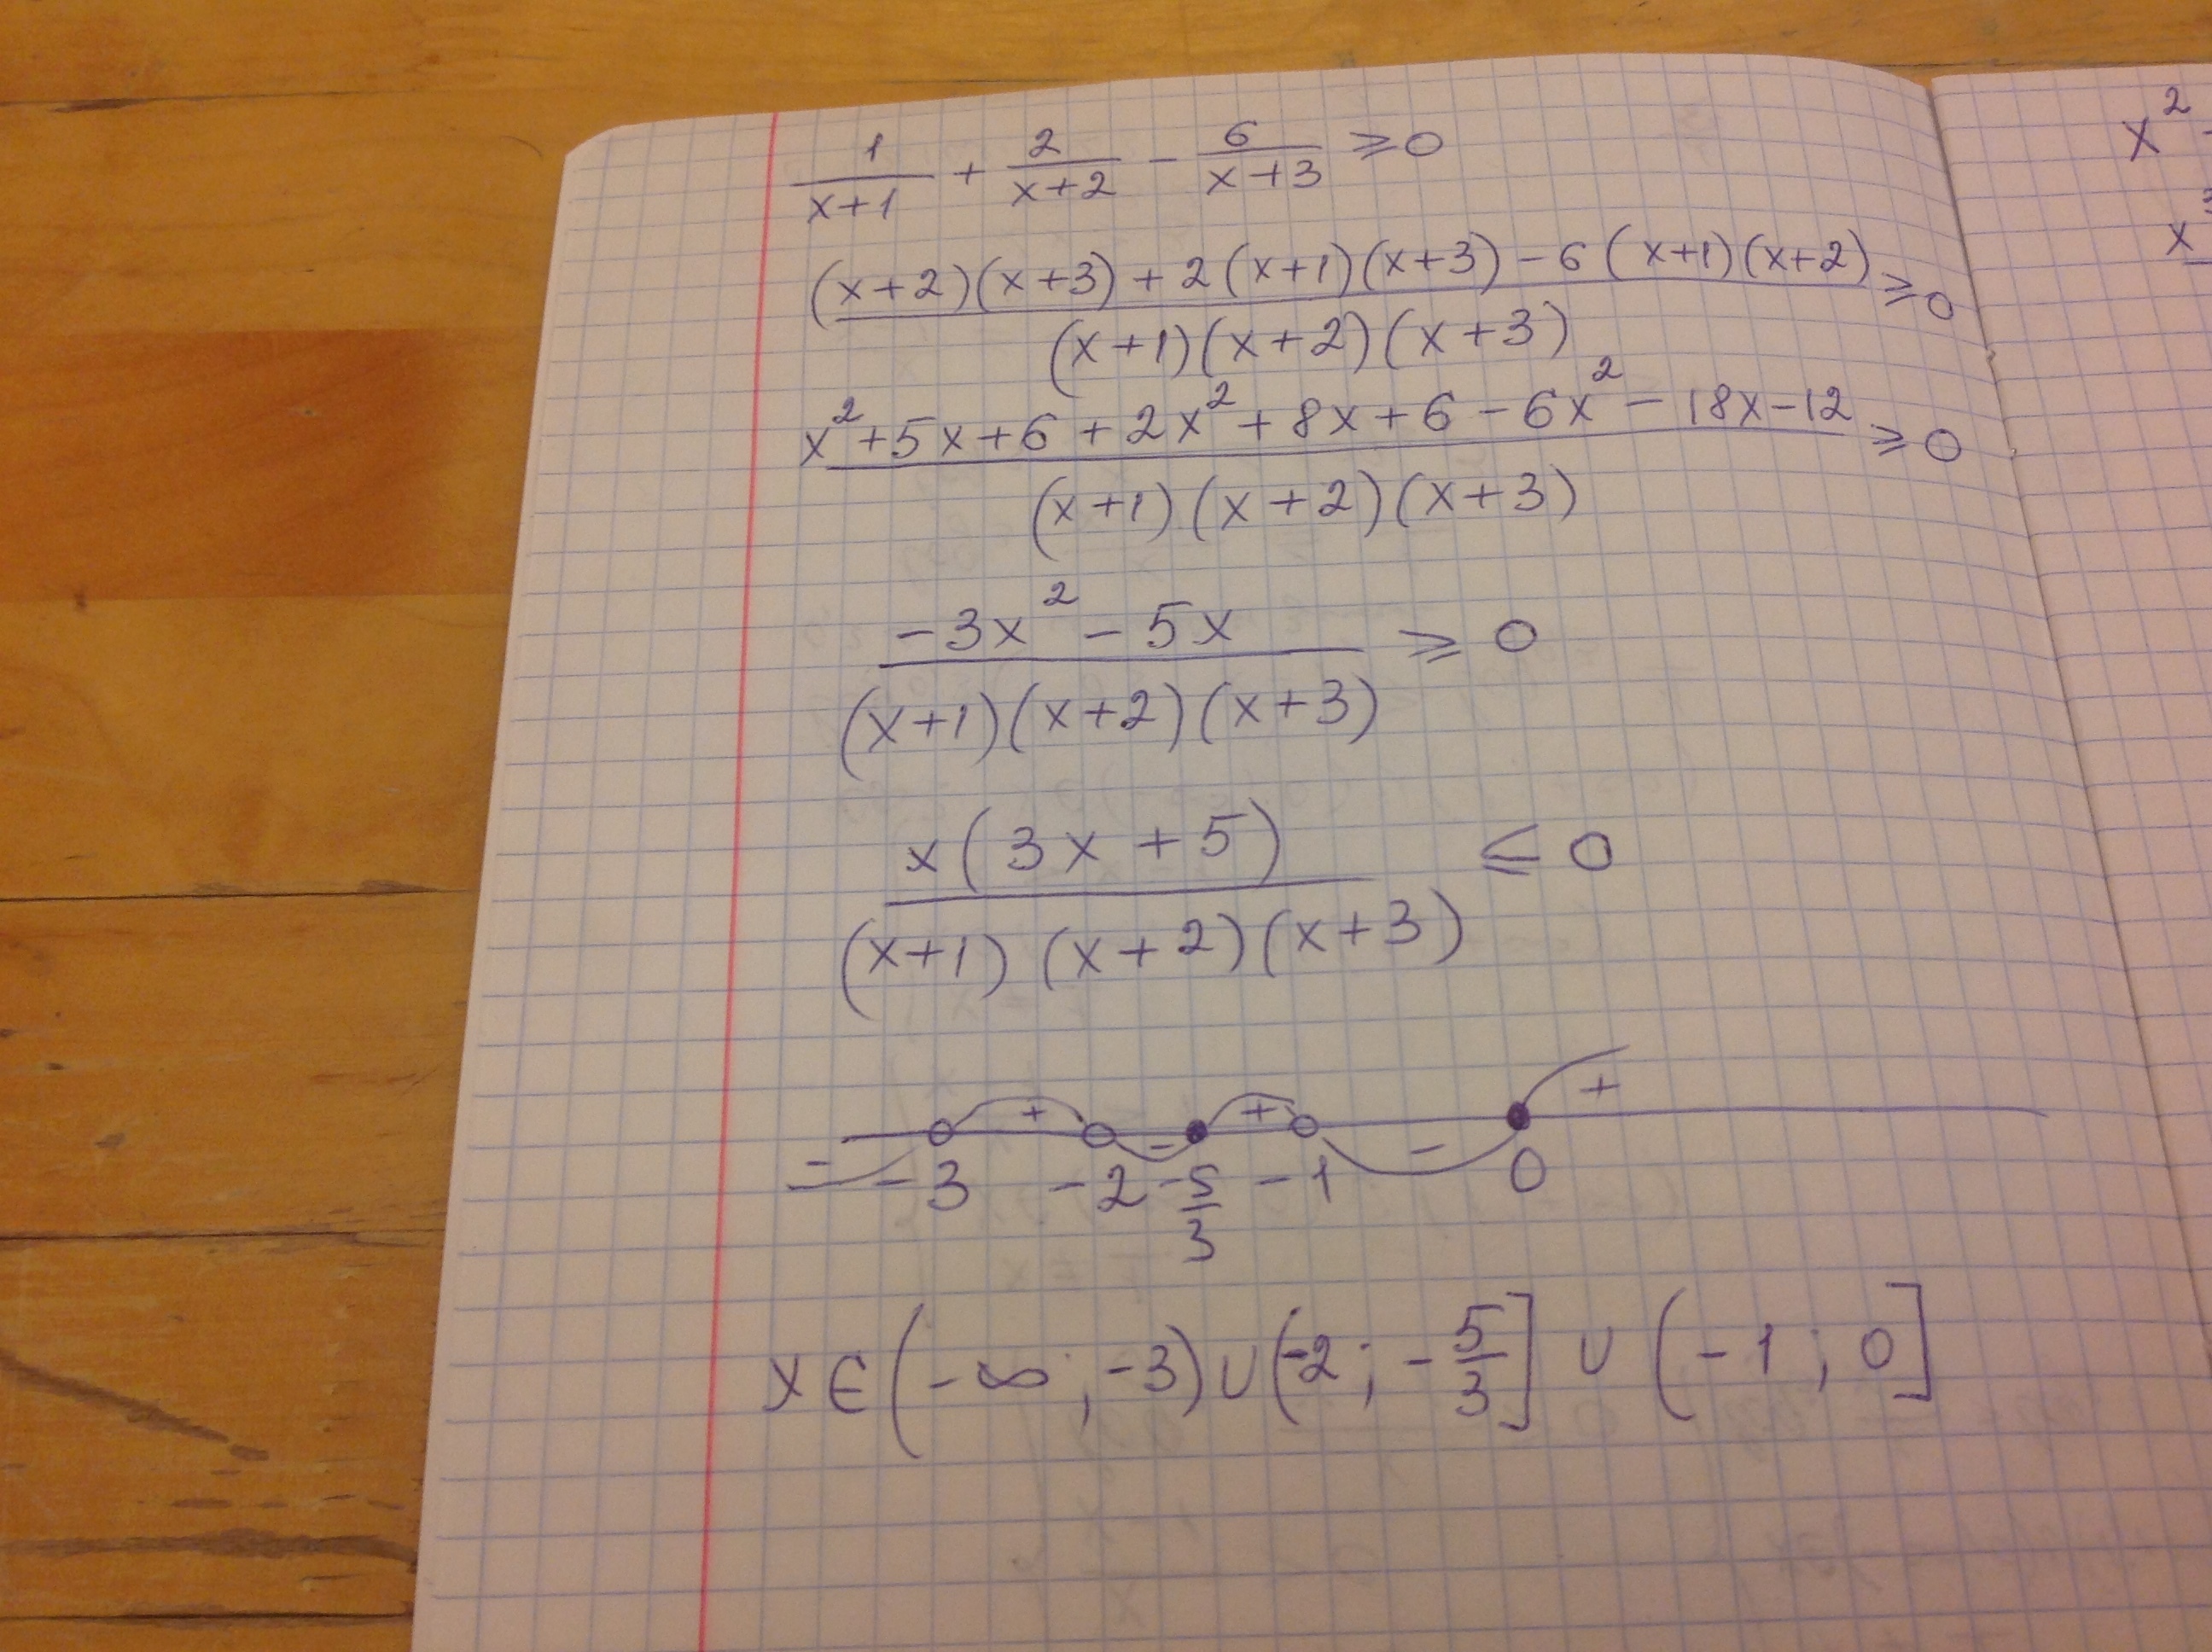 1/(x+1) + 2/(x+2) - 6/(x+3) ⩾ 0
((x+2)(x+3) + 2(x+1)(x+3) - 6(x+1)(x+2))/((x+1)(x+2)(x+3)) ⩾ 0
(x² + 5x + 6 + 2x² + 8x + 6 - 6x² - 18x - 12)/((x+1)(x+2)(x+3)) ⩾ 0
(-3x² - 5x)/((x+1)(x+2)(x+3)) ⩾ 0
x(3x+5)/((x+1)(x+2)(x+3)) ⩽ 0
- + - + - +
-3 -2 -5/3 -1 0
x ∈ (-∞; -3) ∪ (-2; -5/3] ∪ (-1; 0]
x²
x³